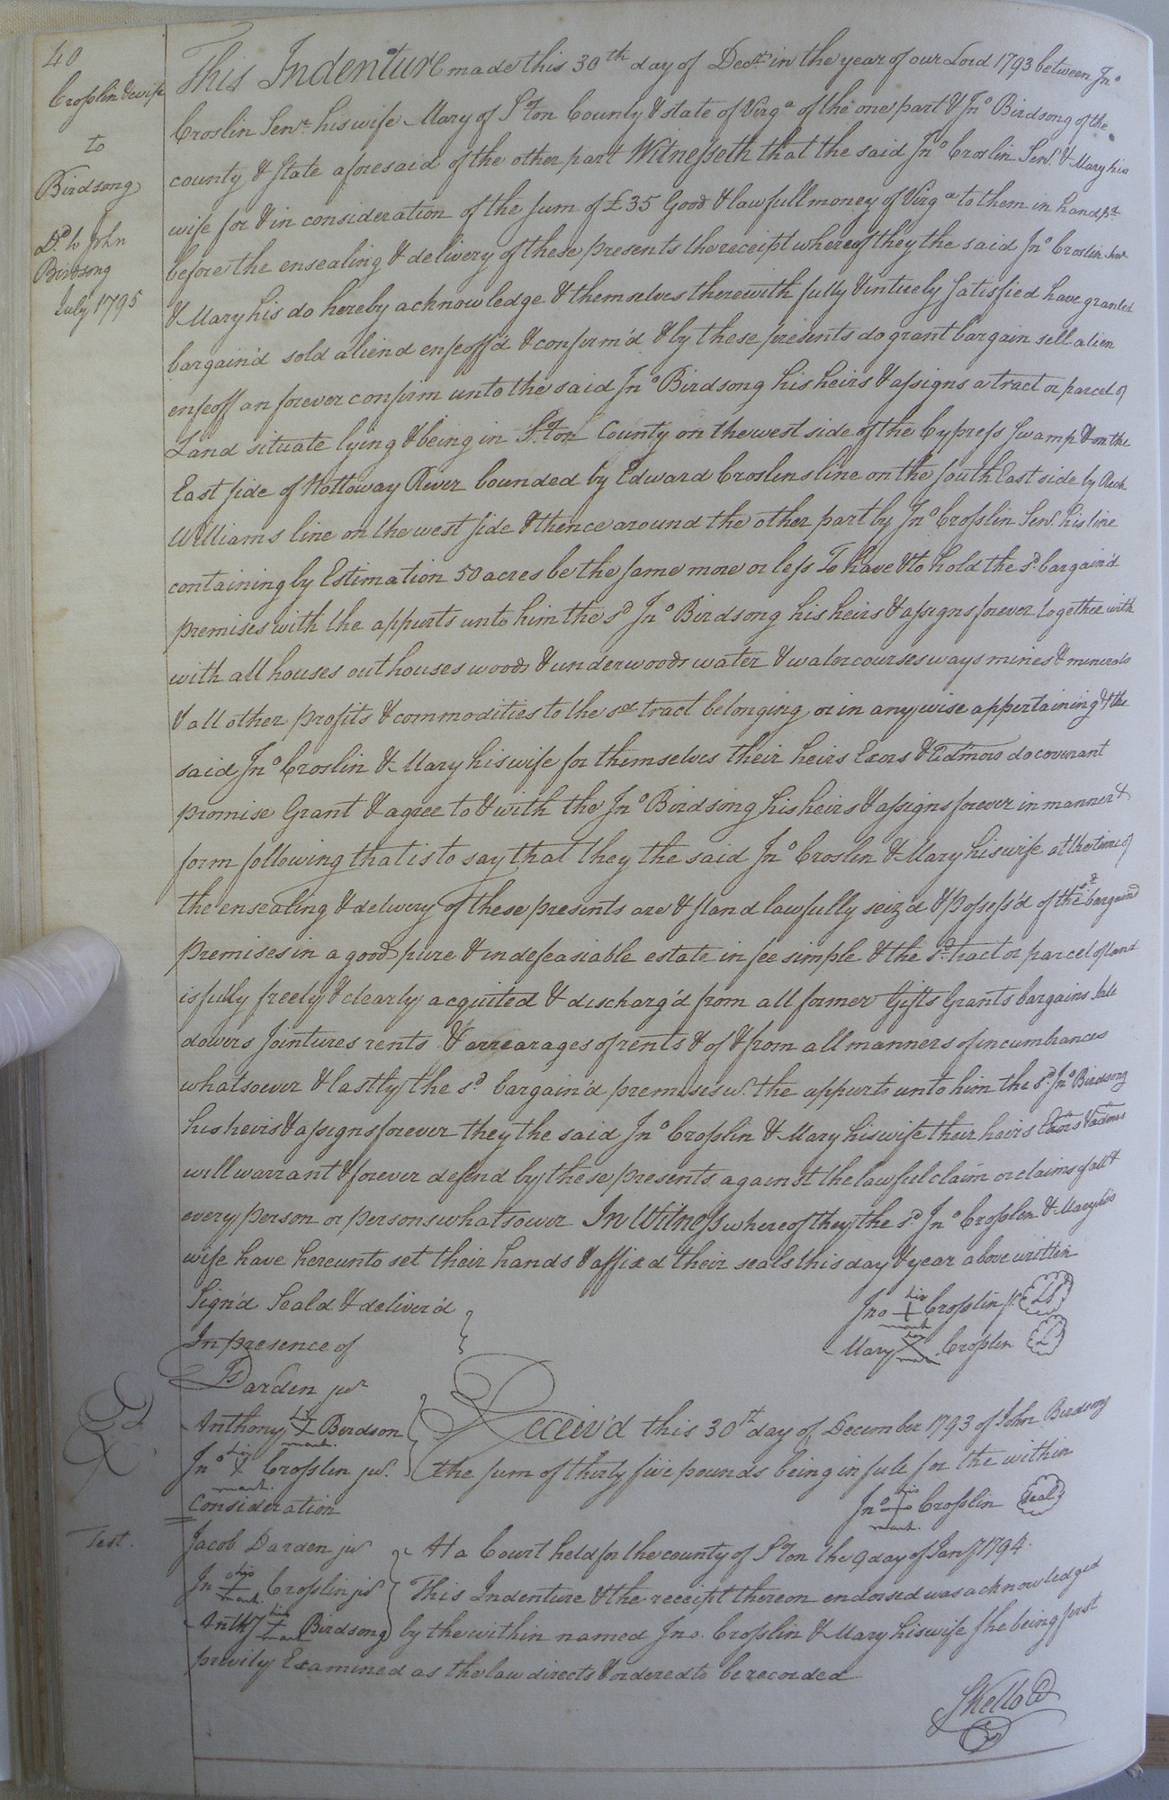 40
Crosslin & wife
to
Birdsong
Dd to John
Birdsong
July 1795
This Indenture made this 30th day of Decr. in the year of our Lord 1793 between Jno
Croslin Senr. his wife Mary of S'ton County & state of Virga of the one part & Jno Birdsong of the
county & state aforesaid of the other part Witnesseth that the said Jno Croslin Senr. & Mary his
wife for & in consideration of the sum of £35 Good & lawfull money of Virga to them in hand pd.
before the ensealing & delivery of these presents the receipt whereof they the said Jno Croslin Senr
& Mary his do hereby acknowledge & themselves therewith fully & intirely satisfied have granted
bargain'd sold aliend enfeoff'd & confirm'd & by these presents do grant bargain sell alien
enfeoff an forever confirm unto the said Jno Birdsong his heirs & assigns a tract or parcel of
Land situate lying & being in S'ton County on the west side of the Cypress Swamp & on the
East side of Nottoway River bounded by Edward Croslins line on the south East side by
Williams line on the west side & thence around the other part by Jno Crosslin Senr. his line
containing by Estimation 50 acres be the same more or less To have & to hold the sd. bargain'd
premises with the appurts unto him the sd Jno Birdsong his heirs & assigns forever together with
with all houses out houses woods & underwoods water & watercourses ways mines & minerals
& all other profits & commodities to the sd tract belonging or in any wise appertaining & the
said Jno Croslin & Mary his wife for themselves their heirs Exors & Admors do covenant
promise Grant & agree to & with the Jno Birdsong his heirs & assigns forever in manner &
form following that is to say that they the said Jno Croslin & Mary his wife at the time of
the ensealing & delivery of these presents are & stand lawfully seiz'd & possess'd of the sd. bargaind
premises in a good pure & indefeasiable estate in fee simple & the sd. tract or parcel of land
is fully freely & clearly acquited & discharg'd from all former Gifts Grants bargains sale
dowers Jointures rents & arrearages of rents & of & from all manners of incumbrances
whatsoever & lastly the sd bargain'd premises w. the appurts unto him the sd. Jno Birdsong
his heirs & assigns forever they the said Jno Crosslin & Mary his wife their heirs Exors & admors
will warrant & forever defend by these presents against the lawful claim or claims of all &
every person or persons whatsoever In Witness whereof they the sd Jno Crosslin & Mary his
wife have hereunto set their hands & affixd their seals this day & year above written
Sign'd Seald & deliver'd
Jno his + mark Crosslin sr. LS
In presence of
Mary her X mark Crosslin LS
Darden jur
Anthony his + mark Birdson
Receiv'd this 30th day of December 1793 of John Birdsong
Jno his + mark Crosslin jur.
the sum of thirty five pounds being in full for the within
Consideration
Jno his + mark Crosslin Seal
Test.
Jacob Darden jur
At a Court held for the county of S'ton the 9 day of Jany 1794
Jn his + mark Crosslin jur
This Indenture & the receipt thereon endorsed was acknowledged
Anthy his + mark Birdsong
by the within named Jno. Crosslin & Mary his wife she being first
privily Examined as the law directs & ordered to be recorded
SKello CC